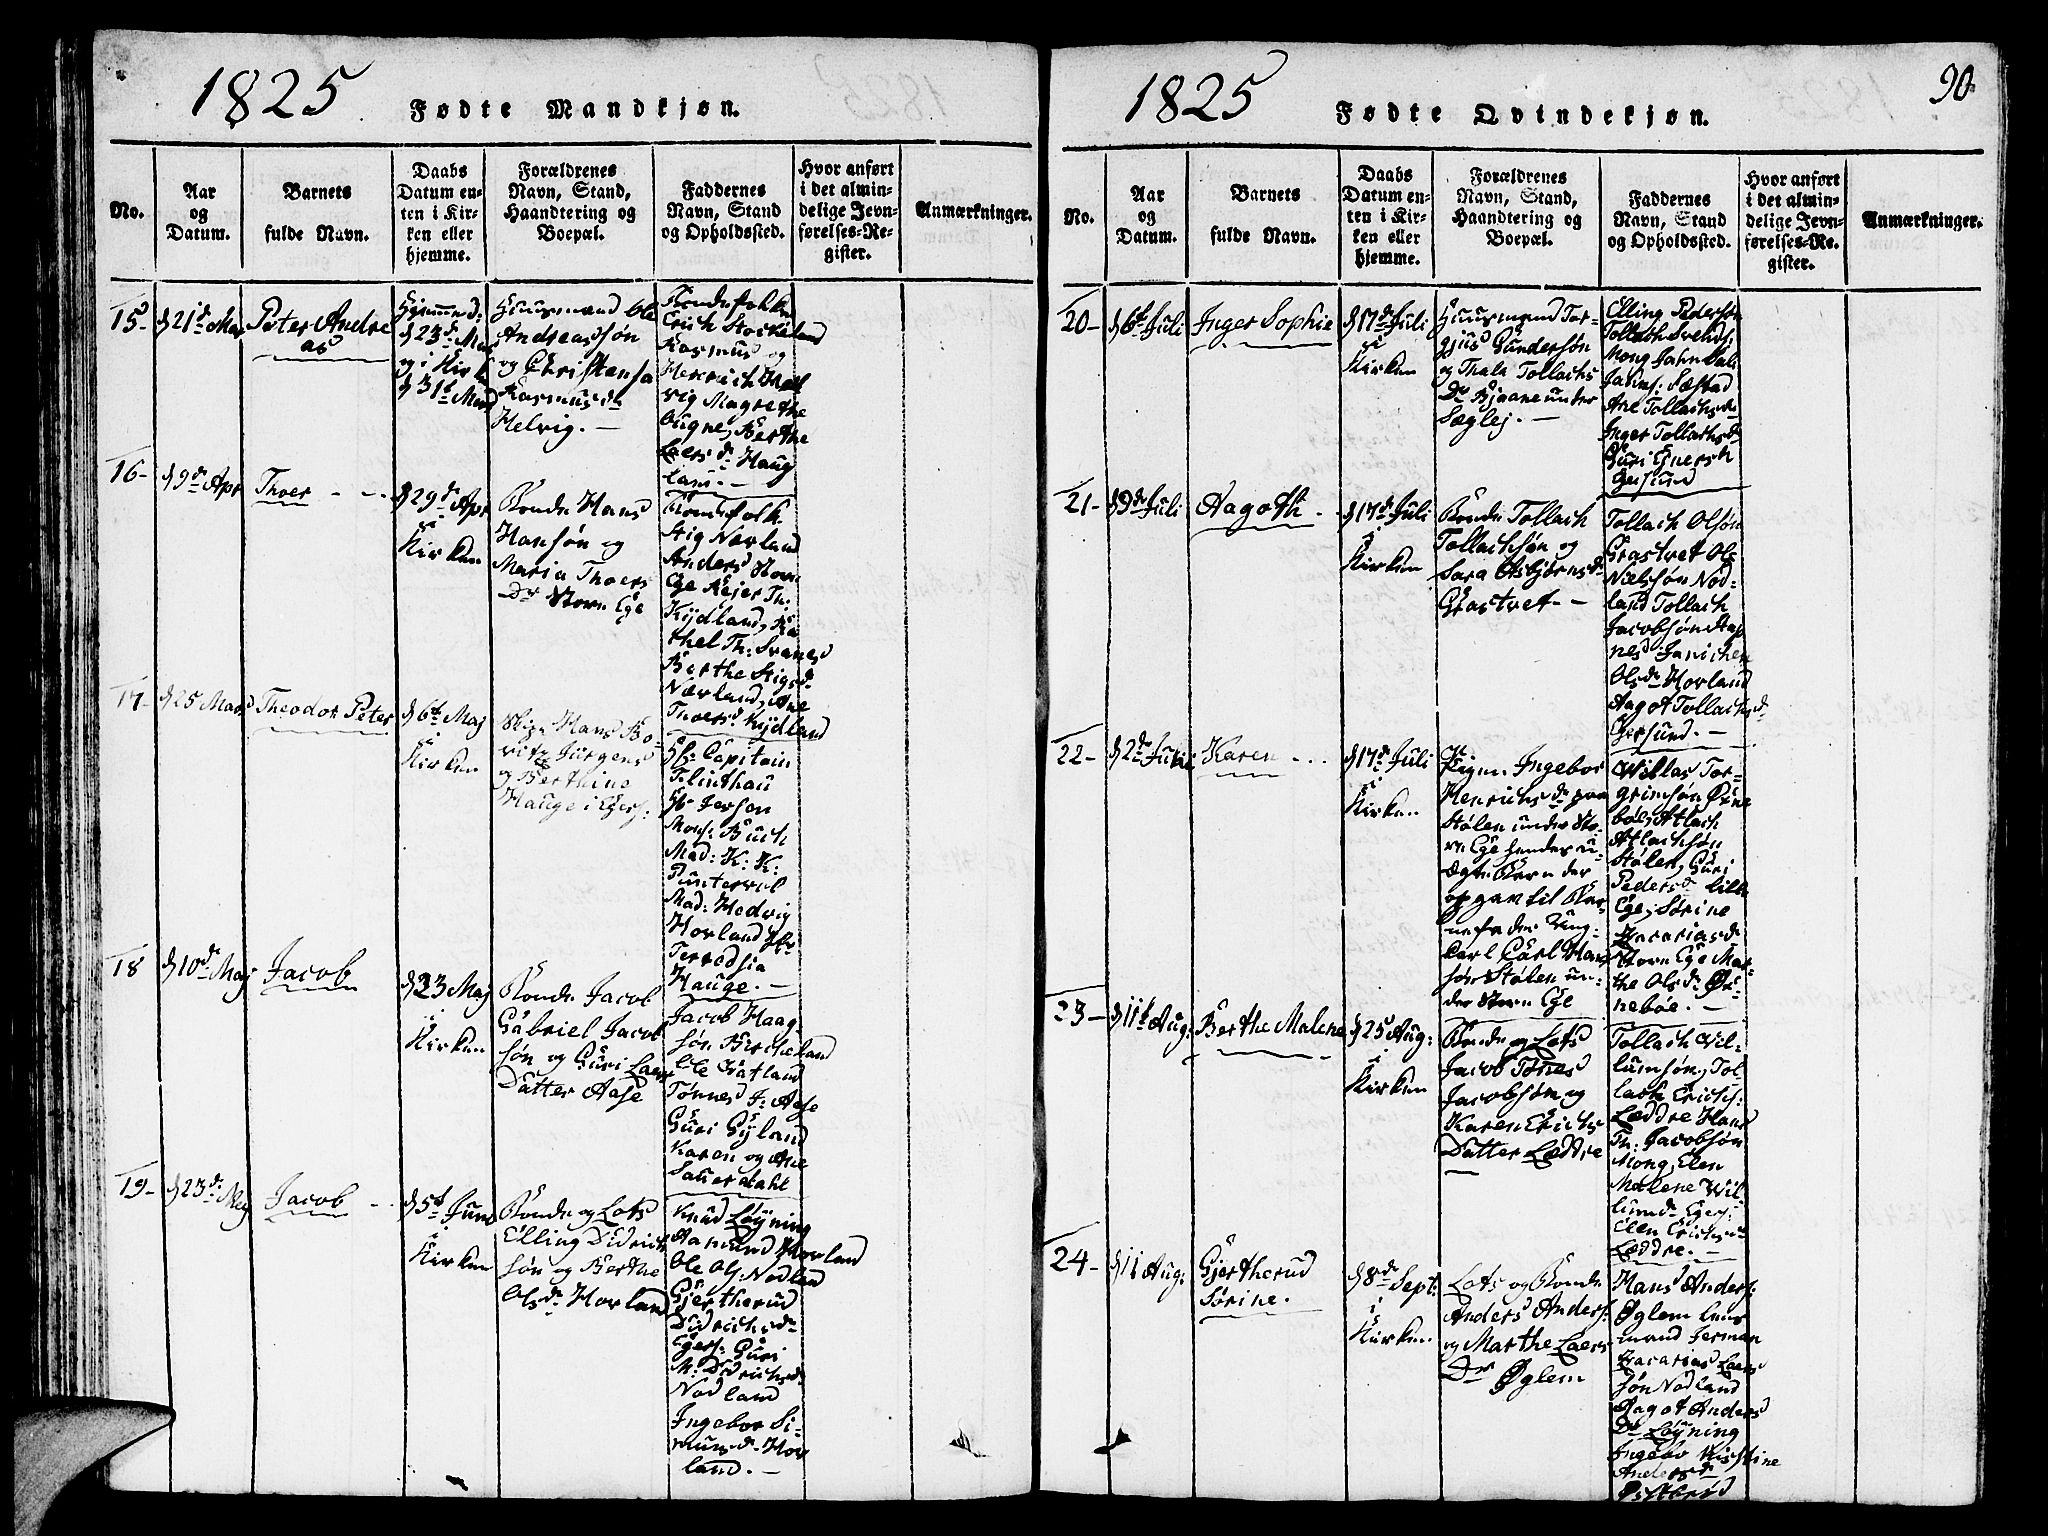 1825
Fødte Mandkjøn.
No.
Aar
og
Datum.
Barnets
fulde Navn.
Daabs
Datum en-
ten i Kir-
ken eller
hjemme.
Forældrenes
Navn, Stand,
Haandtering og
Boepæl.
Faddernes
Navn, Stand
og Opholdssted.
Hvor anført
i det almin-
delige Jevn-
førelses-Re-
gister.
Anmærkninger.
15-
Peter Andre
as
Huusmand Ole
Andreassøn
og Christensa
Rasmusd.
Helvig. -
Bondefolk
Erich Stockeland
Rasmus og
Henrich Hel
vig Magrethe
Berthe
Laers d. Haug
land. -
16-
d 9d Apr
Thoer - -
d 29d Apr
i
Kirken
Bonde Hans
Hansøn og
Maria Thoers
Dr Store Ege
Bondefolk
Stig Nærland
Anders Store
Ege Reier Th:
Kydland, Ra
thel Th: Svanes
Berthe Stigsd.
Nærland, Ane
Thoersd Kydland
17-
d 25 Mars
Theodor Peter
d 6t Maj
i
Kirken
Hans Bo-
ritz Jürgens
og Berthine
Hauge i Egers:
Hr: Capitain
Flinthau
Hr Jersen
Mons: Buch
Mad: K: K:
Puntervol
Mad: Hedvig
Hovland Jfr
Terrodsia
Hauge. -
18
d 10d Maj
Jacob
d 23 Maj
i
Kirken
Bonde Jacob
Gabriel Jacob
søn og Guri Laers
Datter Aase
Jacob Haag-
søn Birkeland
Ole Vatland
Tønnes J: Aase
Guri Gyland
Karen og Ane
Sauerdahl
19-
d 23d Maj
Jacob - -
d 5t Juni
i
Kirken
Bonde og Lots
Elling Didrich
søn og Berthe
Olsd. Hovland
Knud Løyning
Aamund Hovland
Ole Ols: Nodland
Gjertherud
Didrichsd.
Egers: Guri
M: Didrichsd
Nodland
Ingebor Si-
munsd. Hov
land. -
1825
Fødte Qvindekjøn.
90
No.
Aar
og
Datum.
Barnets
fulde Navn.
Daabs
Datum en-
ten i Kir-
ken eller
hjemme.
Forældrenes
Navn, Stand,
Haandtering og
Boepæl.
Faddernes
Navn, Stand
og Opholdssted.
Hvor anført
i det almin-
delige Jevn-
førelses-Re-
gister.
Anmærkninger.
20-
d 6t Juli
Inger Sophie
d 17d Juli
i
Kirken
Huusmand Tor-
gjus Gundersøn
og Thala Tollachs
Dr Bjaane under
Sæglej. -
Elling Peders
Tollach Svends:
Mong Jahn Sali
Jahns: Sæstad
Ane Tollachsd.
Inger Tollachsd.
Guri
Egersund
21-
d 9d Juli
Aagoth. -
d 17d Juli
i
Kirken
Bonde Tollach
Tollachsøn og
Sara Asbjørnsd.
Grastvet - -
Tollach Olsøn
Grastvet Ols
Nielsøn Nod-
land Tollach
Jacobsøn Aap
Janichen
Olsd. Hovland
Aagot Tollachsd.
Egersund. -
22-
Karen - - -
d 17d Juli
i
Kirken
Pigen Ingebor
Henrichsd. paa
Stølen under Sto-
re Ege hendes u-
ægte Barn der
opgav til Bar-
nefader Ung-
karl Carl Hans
søn Stølen un-
der Store Ege
Villas Tor-
grimsøn Ørne
boe, Atlach
Atlachsøn
Stølen, Guri
Pedersd lille
Ege, Sørine
Zacariasd.
Store Ege Mar-
the Olsd. Ør-
neboe. -
23-
d 11t Aug:
Berthe Malene
d 25 Aug:
i
Kirken
Bonde og Lots
Jacob Tønnes
Jacobsøn og
Karen Erichs
Datter Læddre
-
Tollach Vil-
lumsøn, Tol-
lach Erichs:
Læddre Hans
Th: Jacobsøn
Mong, Elen
Malene Vil-
lumd. Egers:
Elen Erichsd.
Læddre. -
24-
d 11 Aug:
Gjertherud
Sørine.
d 8d Sept:
i
Kirken
Lots og Bonde
Anders Anders:
og Marthe Laers
Dr Øglem
Hans Anders:
Øglem Lens
mand Jerman
Zacarias Laers
søn Nodland
Aagot Anders
Dr Løyning
Ingebor Kistine
Andersd.